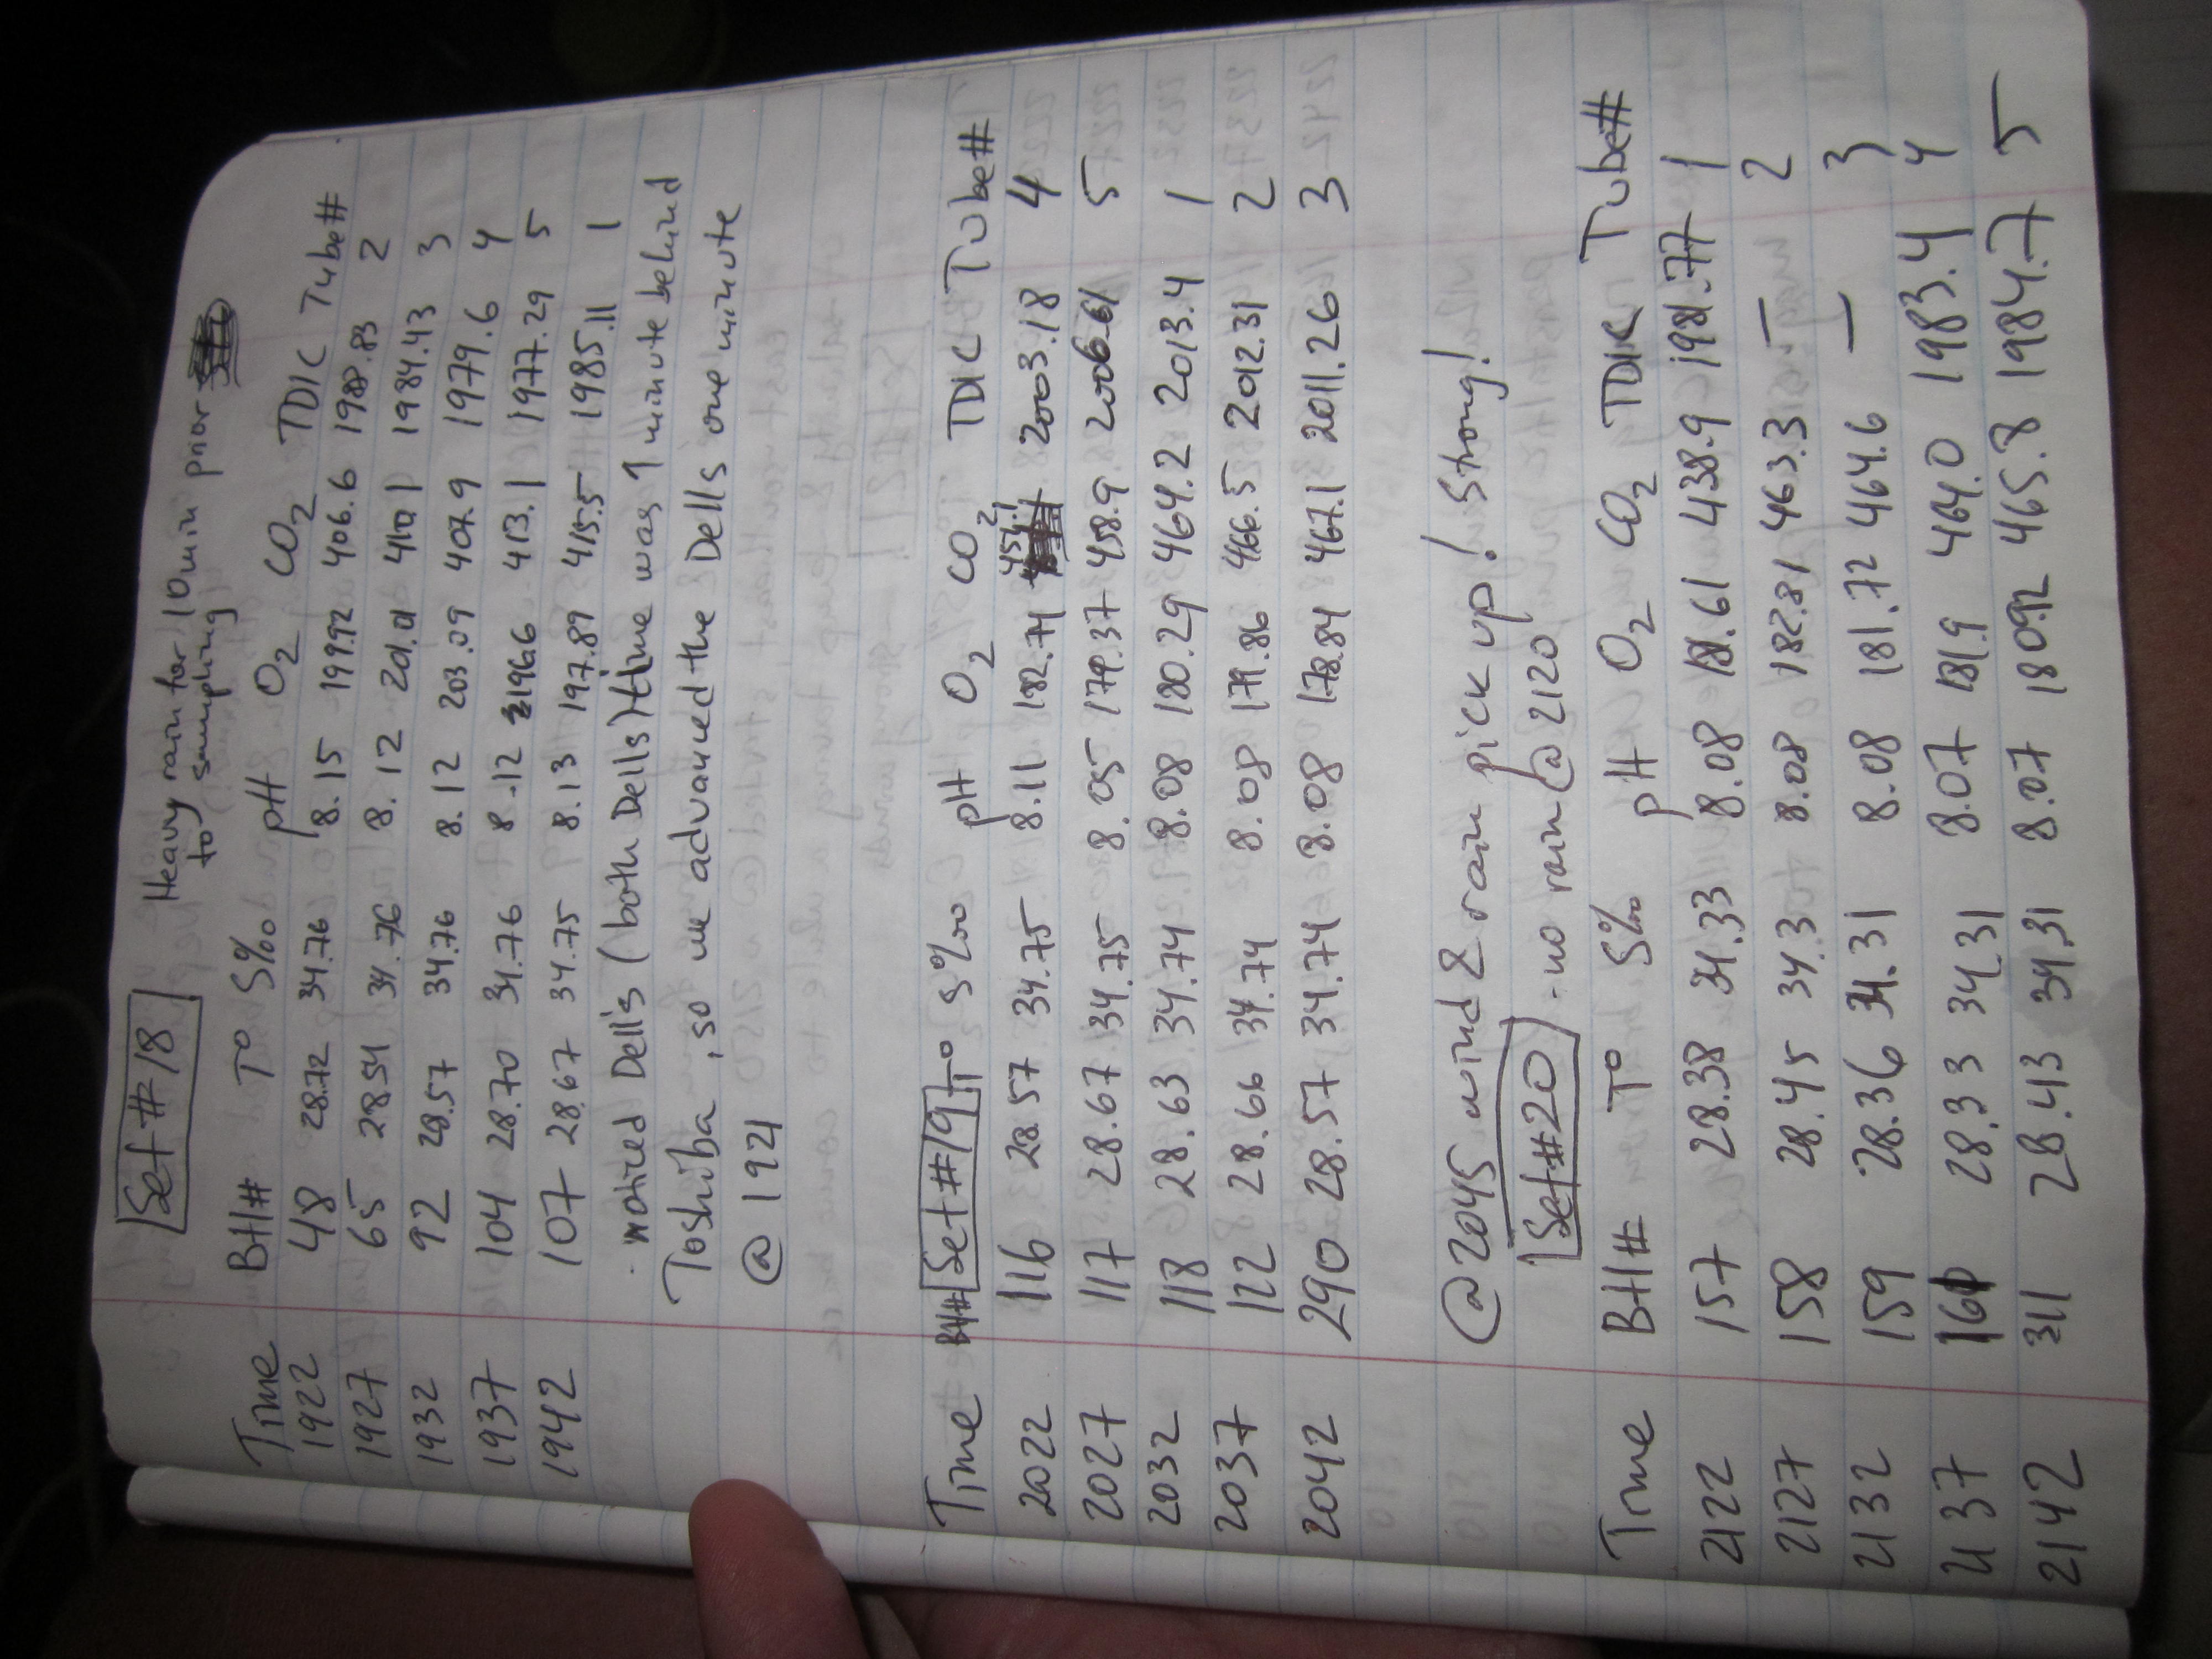 Set #18 Heavy rain for 10 min prior
to sampling
Time Btl# T° S‰ pH O2 CO2 TDIC Tube#
1922 48 28.72 34.76 8.15 199.92 406.6 1988.83 2
1927 65 28.54 34.76 8.12 201.01 410.1 1984.43 3
1932 92 28.57 34.76 8.12 203.09 407.9 1979.6 4
1937 104 28.70 34.76 8.12 196.6 413.1 1977.29 5
1942 107 28.67 34.75 8.13 197.89 415.5 1985.11 1
· noticed Dell's (both Dells) time was 1 minute behind
Toshiba, so we advanced the Dells one minute
@ 1921
Time Btl# Set #19 T° S‰ pH O2 CO2 TDIC Tube#
2022 116 28.57 34.75 8.11 182.74 454.1 2003.18 4
2027 117 28.67 34.75 8.05 179.37 458.9 2006.61 5
2032 118 28.63 34.74 8.08 180.29 464.2 2013.4 1
2037 122 28.66 34.74 8.08 179.86 466.5 2012.31 2
2042 290 28.57 34.74 8.08 178.84 467.1 2011.26 3
@ 2045 wind & rain pick up! Strong!
Set #20 - no rain @ 2120
Time Btl# T° S‰ pH O2 CO2 TDIC Tube#
2122 157 28.38 34.33 8.08 181.61 438.9 1981.77 1
2127 158 28.45 34.31 8.08 182.81 463.3 — 2
2132 159 28.36 34.31 8.08 181.72 464.6 — 3
2137 161 28.33 34.31 8.07 181.9 464.0 1983.4 4
2142 311 28.43 34.31 8.07 180.92 465.8 1984.7 5